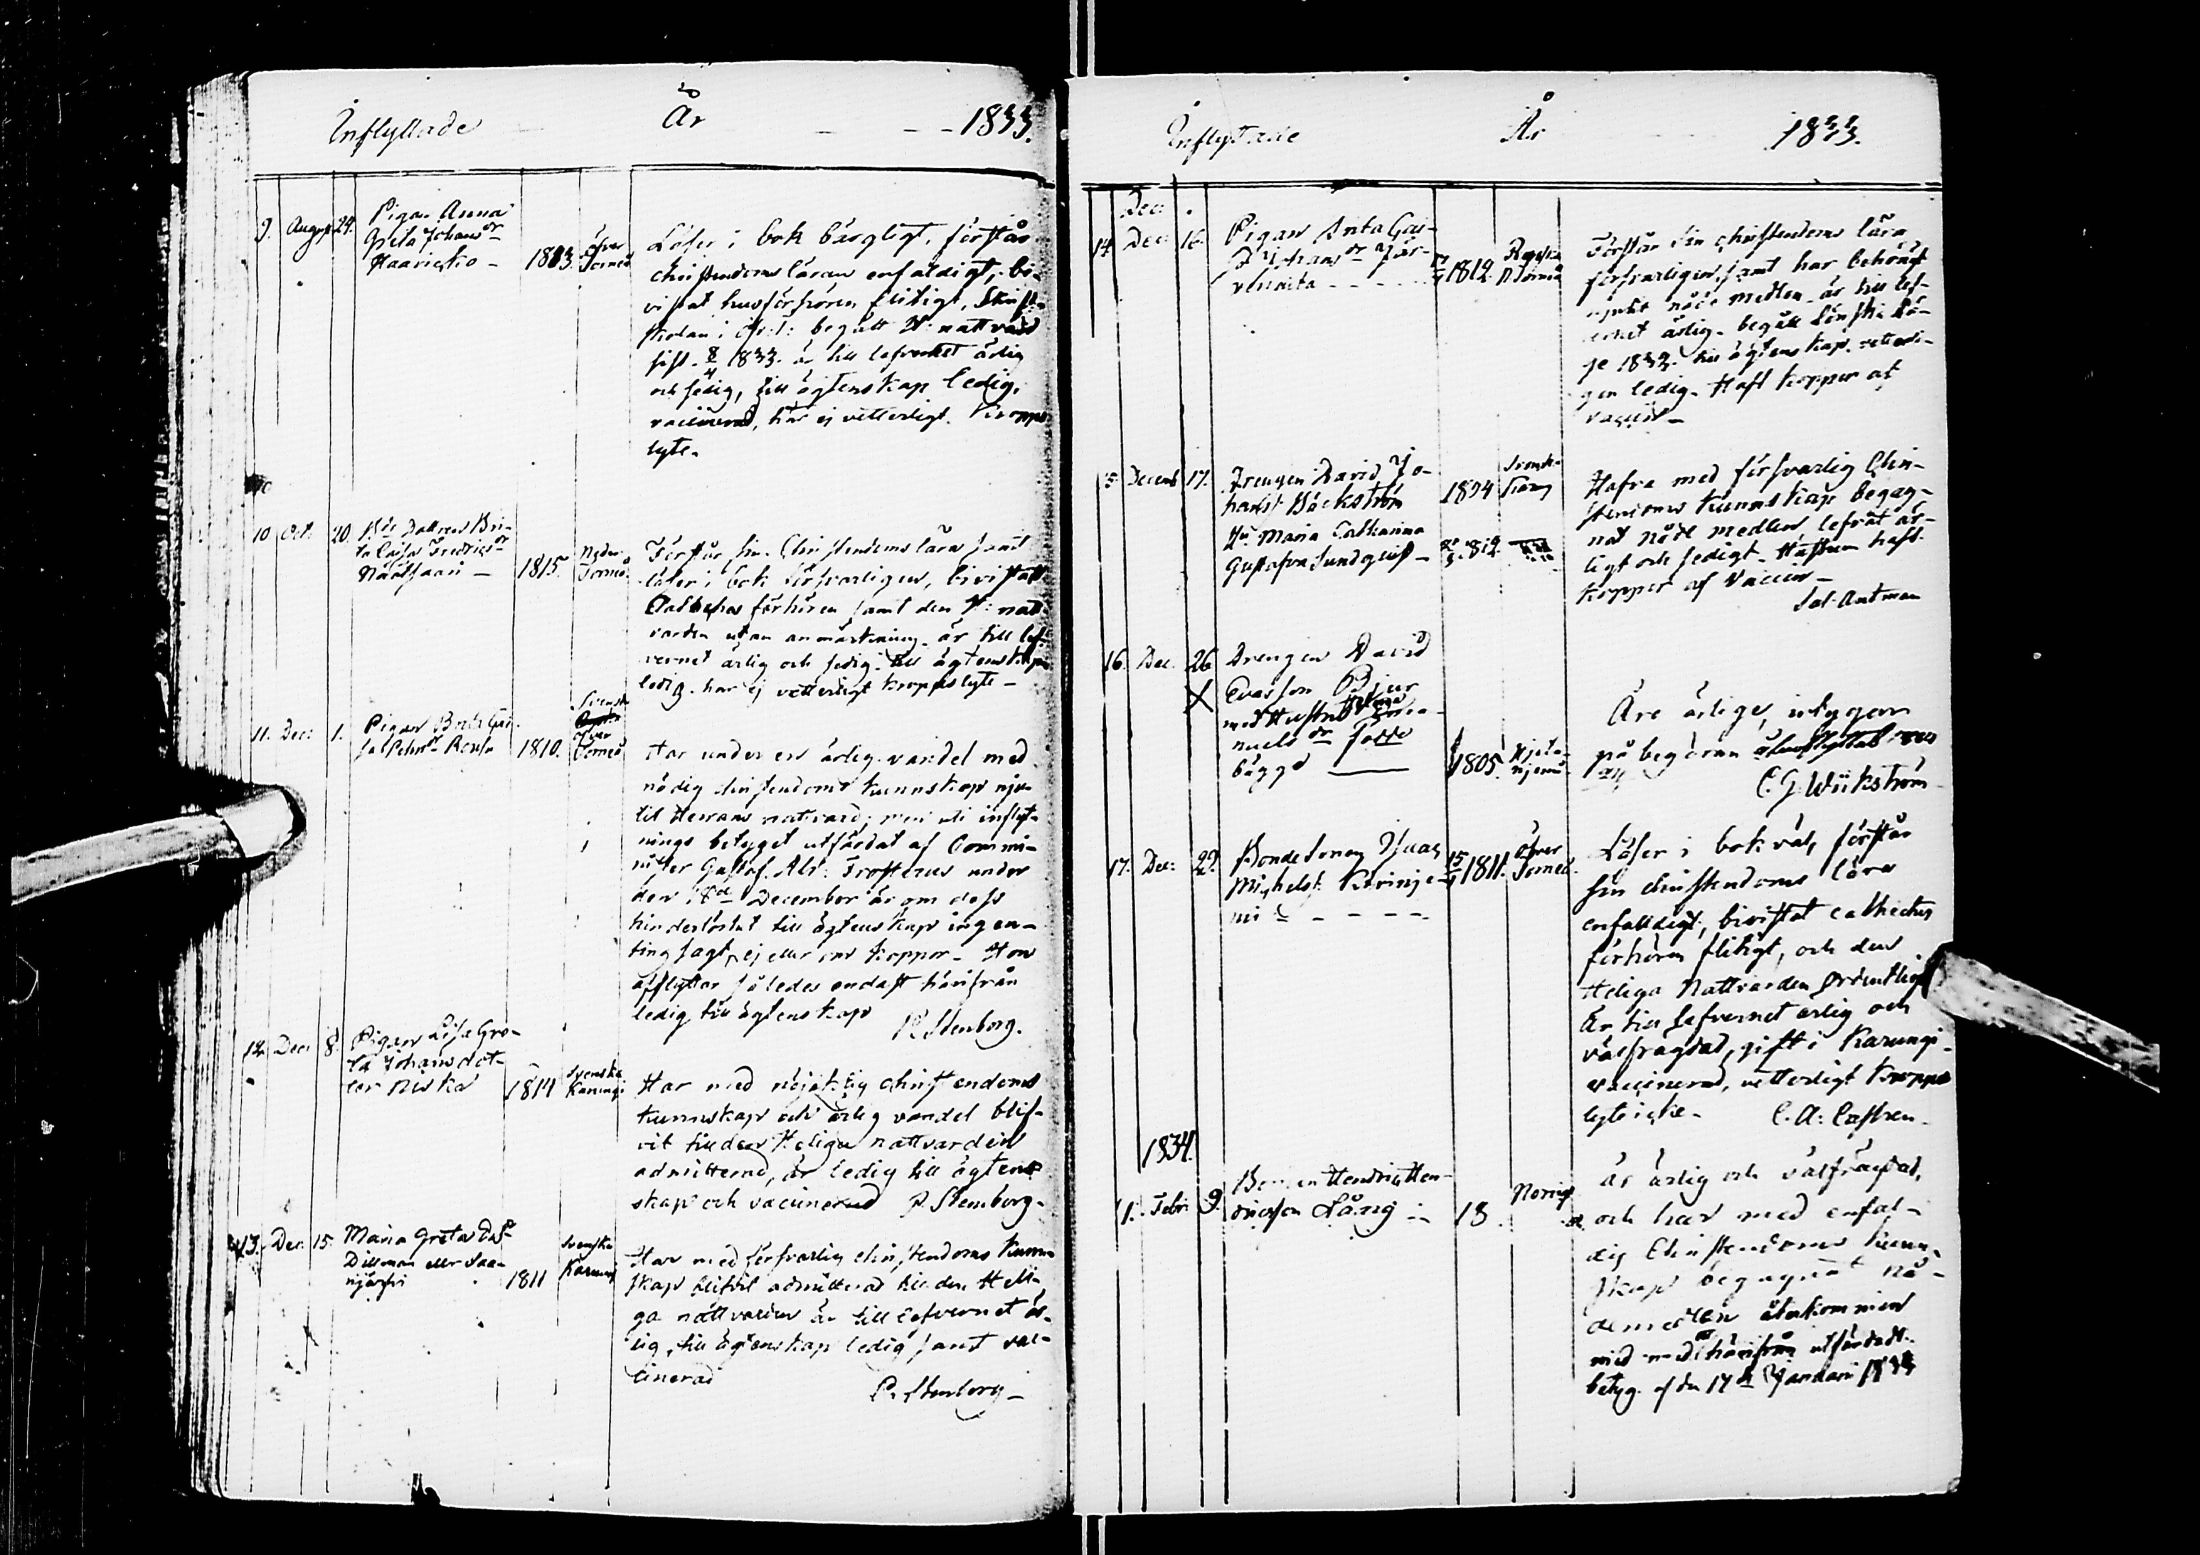 Inflyttade År 1833.
9. August 24. Pigan Anna
Greta Johansdr
Haarisko - 1803. Öfver
Torneå
Läser i bok bärgligt, förstår
christendoms läran enfaldigt, bi-
vistat husförhören flitigt, Skrift-
skolan i År: begått H: nattvard
sist 8/4 1833. är till lefvernet ärlig
och sedig, till ägtenskap ledig,
vaccinerad, har ej vetterligt kropps
lyte.
10 Oct. 20. Bde Dottren Bri-
ta Caisa Fredricsdr
Näätsaari - 1815. Neder
Torneå
Förstår sin Christendoms lära samt
läser i bok försvarligen, bivistatt
förhören samt den H: natt-
varden utan anmärkning. är till lef-
vernet ärlig och sedig. till ägtenskap
ledig. har ej vetterligt kroppslyte -
11. Dec: 1. Pigan Brita Cai-
sa 1810. Svensk
öfver
Torneå
Har under en ärlig vandel med
nödig christendoms kunnskap nju-
tit Herrans nattvard; men uti inflytt-
nings betyget utfärdat af Commi-
nister Gustaf Alb: Frosterus under
den December är om dess
hinderlöshet till ägtenskap ingen-
ting sagt, ej eller om koppor. Hon
afflyttar således endast härifrån
ledig till ägtenskap
P. Stenborg.
12. Dec: 8. Pigan Lisa Gre-
ta Johansdot-
ter Niska 1814 Svenska
Karungi
Har med nöjaktig christendoms
kunnskap och ärlig vandel blif-
vit till den Heliga nattvarden
admitterad, är ledig till ägten-
skap och vaccinerad P. Stenborg.
13. Dec: 15. Maria Greta
Dillman eller Saa-
njärfvi 1811 Svenska
Karungi
Har med försvarlig christendoms kunn-
skap blifvit admitterad till den Heli-
ga nattvarden är till lefvernet är-
lig, till ägtenskap ledig samt vac-
cinerad
P. Stenborg -
Inflyttade År 1833.
Dec:
14 Dec: 16. Pigan Brita Cai-
sa Johansdr
1812. N Torneå
Förstår sin christendoms lära
försvarligen, samt har behörigt
njutit nåde medlen. är till lef-
vernet ärlig. begått
1832. till ägtenskap
gen ledig. Haft koppor af
vaccin -
15 Decemb 17. Drengen David Jo-
hanss: Bäckström 1804 Svensk
Karungi
Hu Maria Catharina
Gustafva Sundqvist - 1812
Hafva med försvarlig Chri-
stendoms kunnskap begag-
nat nåde medlen, lefvat är-
ligt och sedigt. Hafva haft
koppor af vaccin -
Sal. Antman
16. Dec. 26 Drengen David
Evasson Bjur
med Hustru
Ema-
nuels dr
bägge 1805.
Äre ärlige, intygar
på begäran
C. G. Wiikström
17. Dec: 29. Bonde sonen Isaac
Michelss: Keinije-
mi 15 1811. Öfver
Torneå.
Läser i bok väl, förstår
sin christendoms lära
enfaldigt, bivistat catheches
förhören flitigt, och den
Heliga Nattvarden ordentligt
Är till lefvernet ärlig och
välfrägdad, gift i Karungi.
vaccinerad, vetterligt kropps
lyte icke. C. A: Castren.
1834.
1. Febr: 9. Hendric Hen-
dricsson Lång 18 . Norrige
är ärlig och välfrägdad,
och har med enfal-
dig Christendoms kunn-
skap begagnat nå-
demedlen återkommen
med härifrån utfärdadt
betyg af den 17de Januari 1833